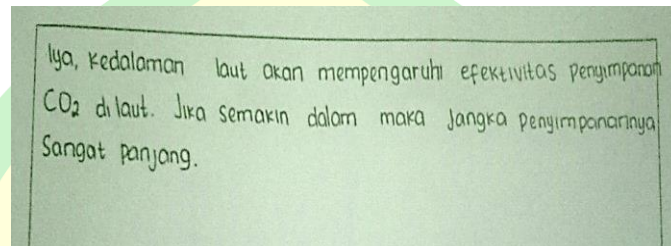 Iya, Kedalaman laut akan mempengaruhi efektivitas penyimpanan
CO2 di laut. Jika semakin dalam maka Jangka penyimpanannya
Sangat panjang.